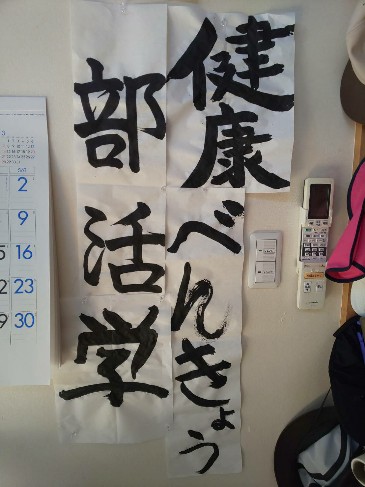 健康べんきょう
部活学
SAT
2
9
16
23
30